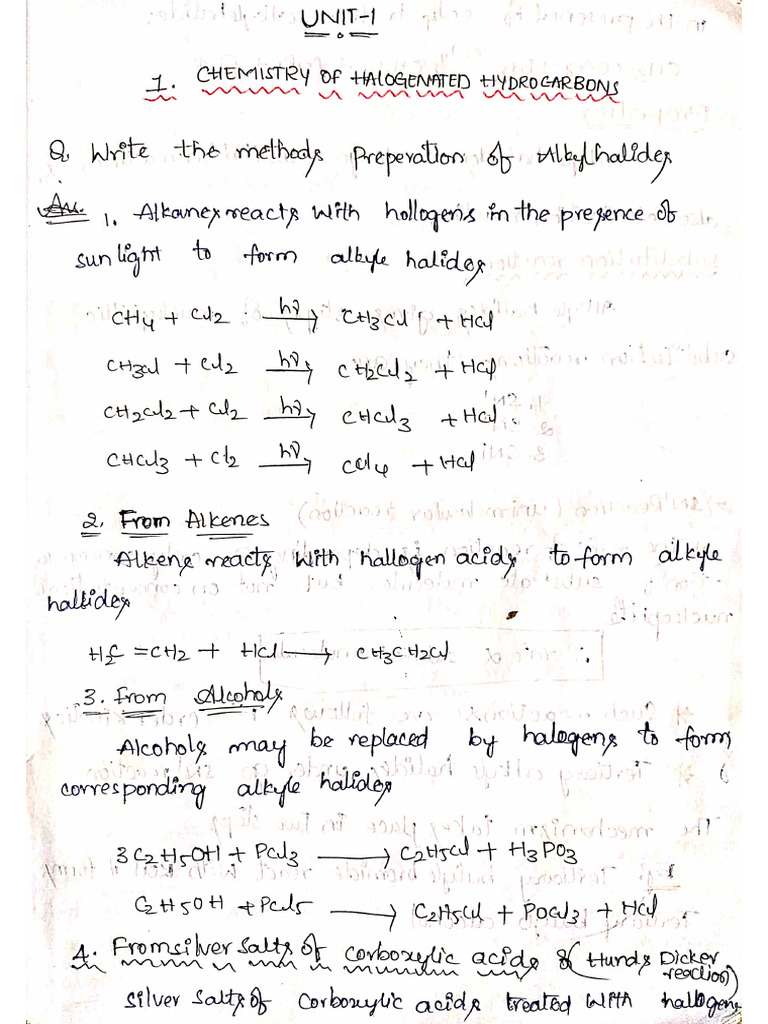 UNIT-1
1. CHEMISTRY OF HALOGENATED HYDROCARBONS
Q. Write the methods Preperation of Alkylhalides
Ans. 1. Alkanes reacts with hollogens in the presence of
sunlight to form alkyle halides
CH4 + Cl2 —hν→ CH3Cl + HCl
CH3Cl + Cl2 —hν→ CH2Cl2 + HCl
CH2Cl2 + Cl2 —hν→ CHCl3 + HCl
CHCl3 + Cl2 —hν→ CCl4 + HCl
2. From Alkenes
Alkene reacts with hallogen acids to form alkyle
halides
=CH2 + HCl → CH3CH2Cl
3. From Alcohols
Alcohols may be replaced by halogens to form
corresponding alkyle halides
3C2H5OH + PCl3 → C2H5Cl + H3PO3
C2H5OH + PCl5 → C2H5Cl + POCl3 + HCl.
4. From silver Salts of corboxylic acids & (Hunds Dicker
reaction)
silver salts of corboxylic acids treated with hallogens